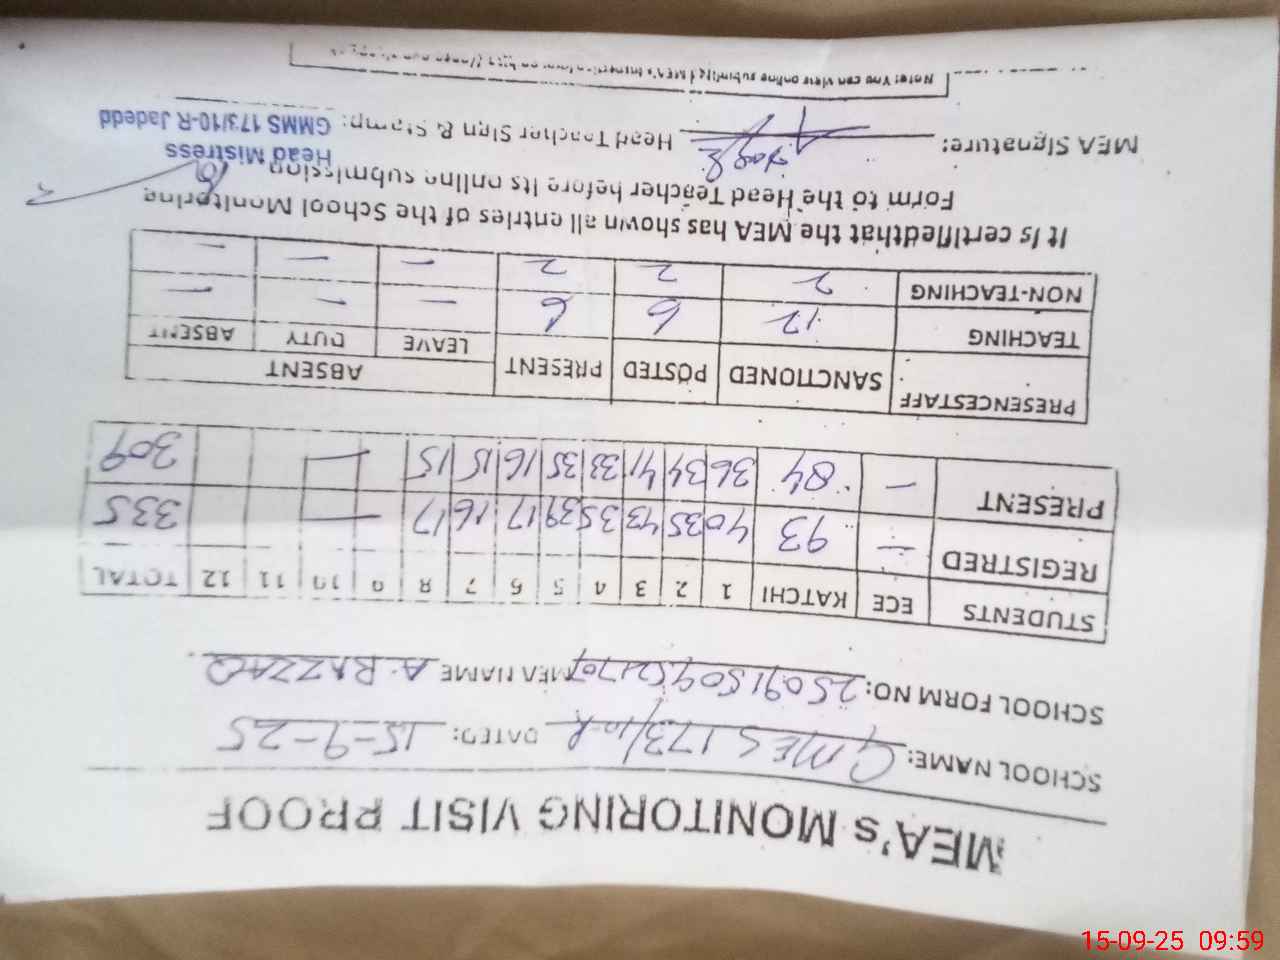 MEA's MONITORING VISIT PROOF
SCHOOL NAME: GMES 173/10-R DATED: 15-9-25
SCHOOL FORM NO: MEA NAME A. RAZZAQ
STUDENTS ECE KATCHI 1 2 3 4 5 6 7 8 9 10 11 12 TOTAL
REGISTRED - 93 40 35 43 35 39 17 16 17 — 335
PRESENT - 84 36 34 41 33 35 16 15 15 — 309
PRESENCESTAFF SANCTIONED POSTED PRESENT ABSENT
LEAVE DUTY ABSENT
TEACHING 12 6 6 - - -
NON-TEACHING 2 2 2 - - -
It is certifiedthat the MEA has shown all entries of the School Monitoring
Form to the Head Teacher before its online submission
Head Mistress
MEA Signature: Head Teacher Sign & Stamp: GMMS 173/10-R Jadedd
Note: You can view online submitted MEA's
15-09-25 09:59